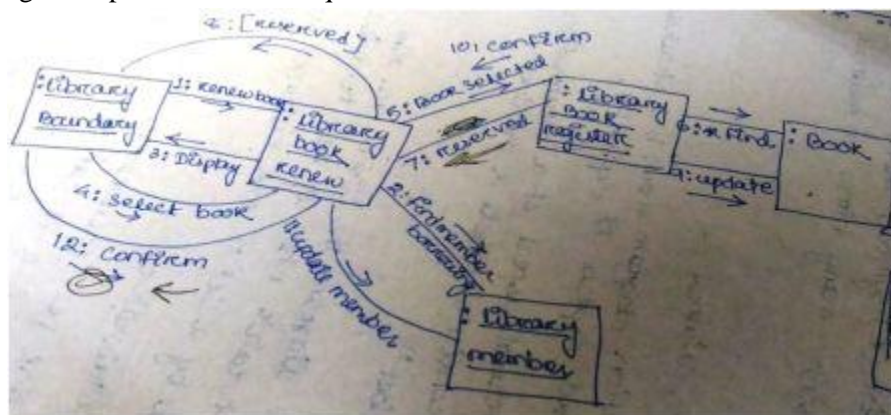 10: confirm
: Library
Boundary
1: Renew book
3: Display
4: select book
12: confirm
: Library
book
renew
5: Book selected
7: reserved
: Library
Book
register
6: * find
9: update
: Book
2: find member
update member
: Library
member
[reserved]